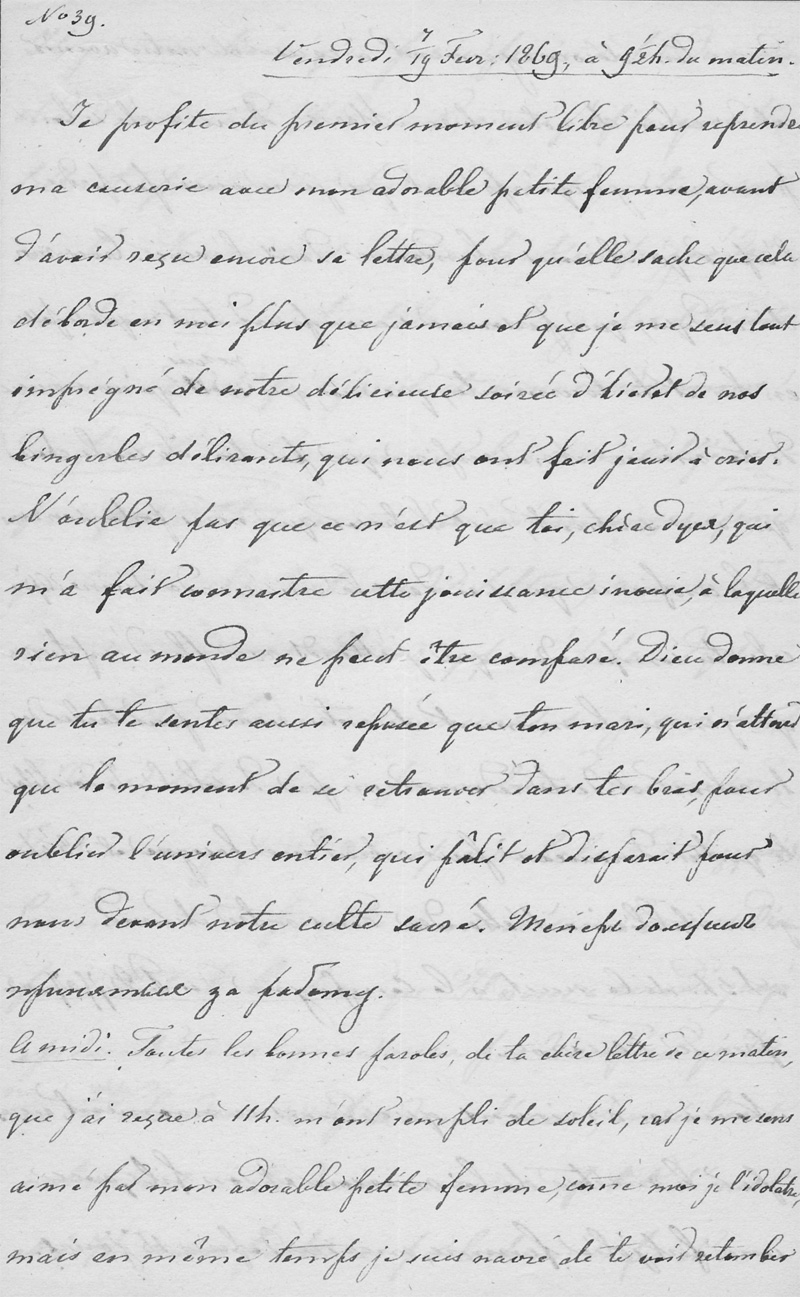 No 39.
Vendredi 7/19 Fevr: 1869, à 9½h. du matin.
Je profite du premier moment libre pour reprendre
ma causerie avec mon adorable petite femme, avant
d'avoir reçu encore sa lettre, pour qu'elle sache que cela
déborde en moi plus que jamais et que je me sens tout
imprégné de notre délicieuse soirée d'hier et de nos
bingerles délirants, qui nous ont fait jouir à crier.
N'oublie pas que ce n'est que toi, chère дуся, qui
m'a fait connaitre cette jouissance inouie, à laquelle
rien au monde ne peut être comparé. Dieu donne
que tu te sentes aussi reposée que ton mari, qui n'attend
que le moment de se retrouver dans tes bras, pour
oublier l'univers entier, qui pâlit et disparait pour
nous devant notre culte sacré.
за
A midi. Toutes les bonnes paroles, de ta chère lettre de ce matin,
que j'ai reçue à 11h. m'ont rempli de soleil, car je me sens
aimé par mon adorable petite femme, come moi je l'idolatre,
mais en même temps je suis navré de te voir retomber